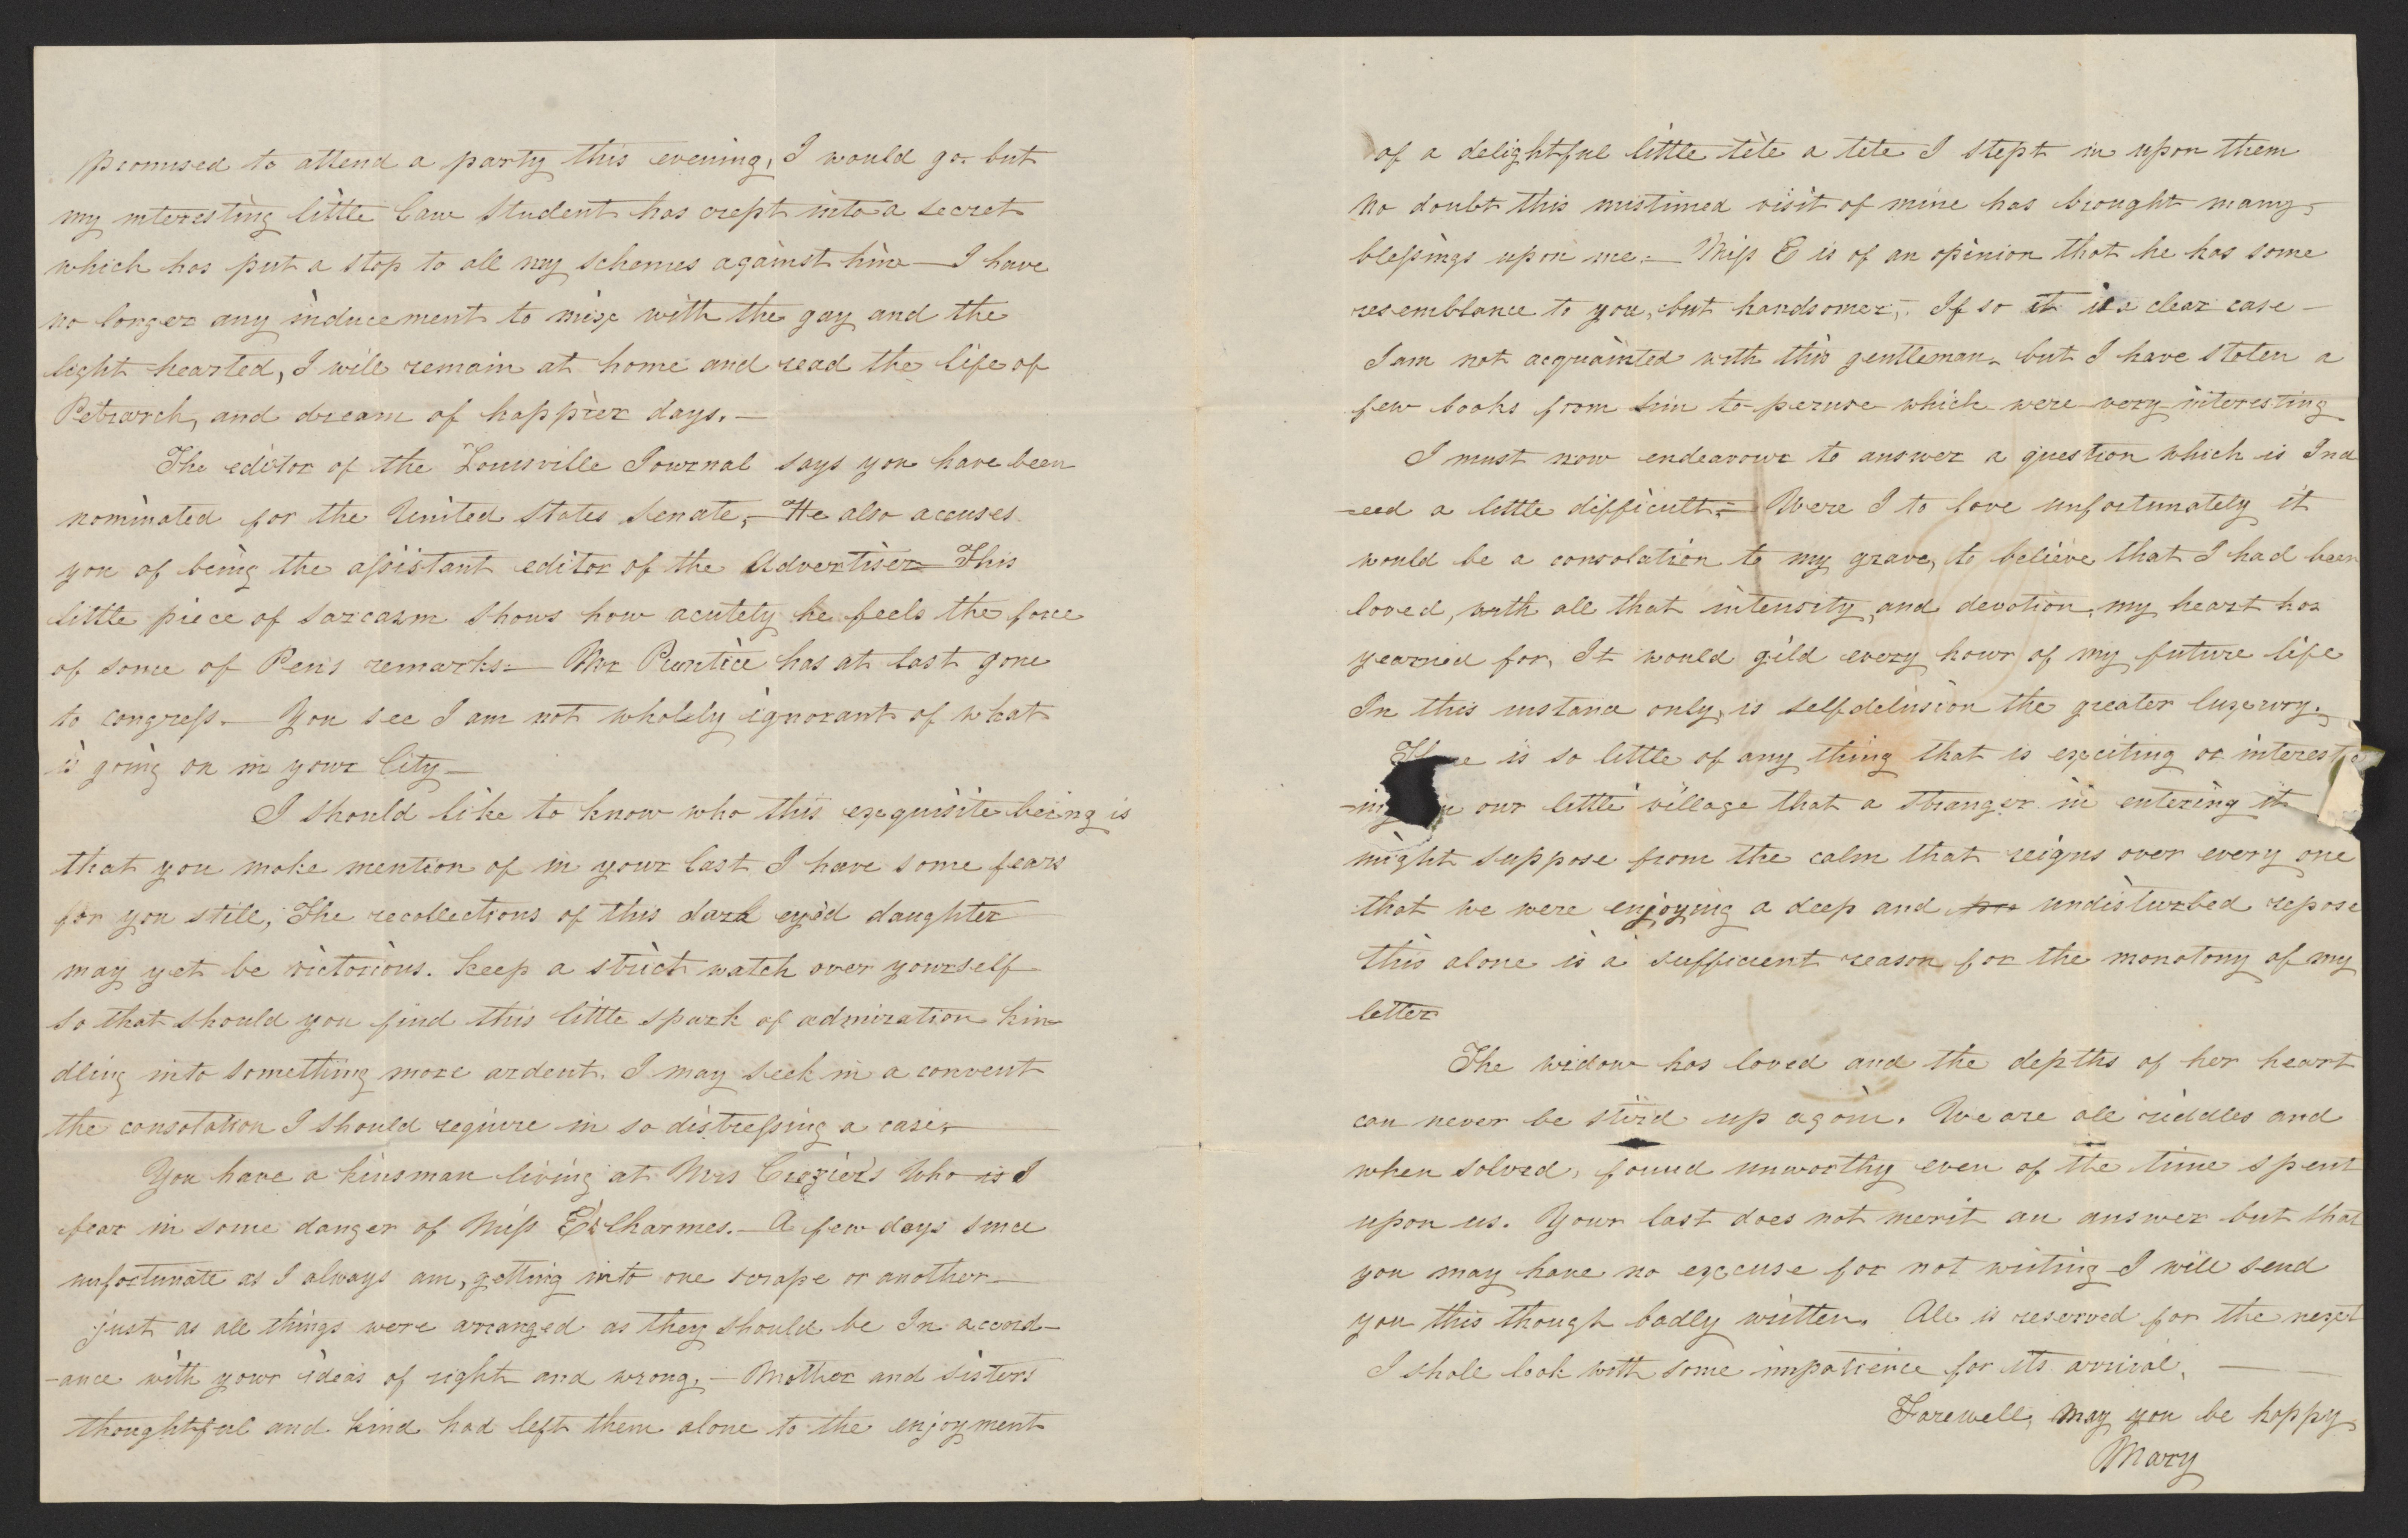 promised to attend a party this evening, I would go. but
my interesting little Law Student has crept into a secret
which has put a stop to all my schemes against him — I have
no longer any inducement to mix with the gay and the
light hearted, I will remain at home and read the life of
Petrarch, and dream of happier days. —
The editor of the Louisville Journal says you have been
nominated for the United States Senate, — He also accuses
you of being the assistant editor of the Advertiser — This
little piece of sarcasm shows how acutely he feels the force
of some of Pen's remarks — Mr Prentice has at last gone
to congress. — You see I am not wholely ignorant of what
is going on in your City —
I should like to know who this exquisite being is
that you make mention of in your last I have some fears
for you still, The recollections of this dark eyed daughter
may yet be victorious. Keep a strict watch over yourself
so that should you find this little spark of admiration kin
dling into something more ardent. I may seek in a convent
the consolation I should require in so distressing a case. —
You have a kinsman living at Mrs Crozier's Who is I
fear in some danger of Miss E's Charmes. — A few days since
unfortunate as I always am, getting into one scrape or another —
just as all things were arranged as they should be In accord-
-ance with your ideas of right and wrong, — Mother and sisters
thoughtful and kind had left them alone to the enjoyment
of a delightful little tete a tete I stept in upon them
no doubt this mistimed visit of mine has brought many
blessings upon me. — Miss E is of an opinion that he has some
resemblance to you, but handsomer, — If so it is a clear case —
I am not acquainted with this gentleman. but I have stolen a
few books from him to peruse which were very interesting
I must now endeavour to answer a question which is Ind
-eed a little difficult. — Were I to love unfortunately it
would be a consolation to my grave, to believe that I had been
loved, with all that intensity, and devotion, my heart has
yearned for, It would gild every hour of my future life
In this instance only, is self delusion the greater luxeury.
is so little of any thing that is exciting or interest
our little village that a stranger in entering it
might suppose from the calm that reigns over every one
that we were enjoying a deep and undisturbed repose
this alone is a sufficient reason for the monotony of my
letter
The widow has loved and the depths of her heart
can never be stird up again. We are all riddles and
when solved, found unworthy even of the time spent
upon us. Your last does not merit an answer but that
you may have no excuse for not writing I will send
you this though badly written. All is reserved for the next
I shall look with some impatience for its arrival. —
Farewell, may you be happy
Mary